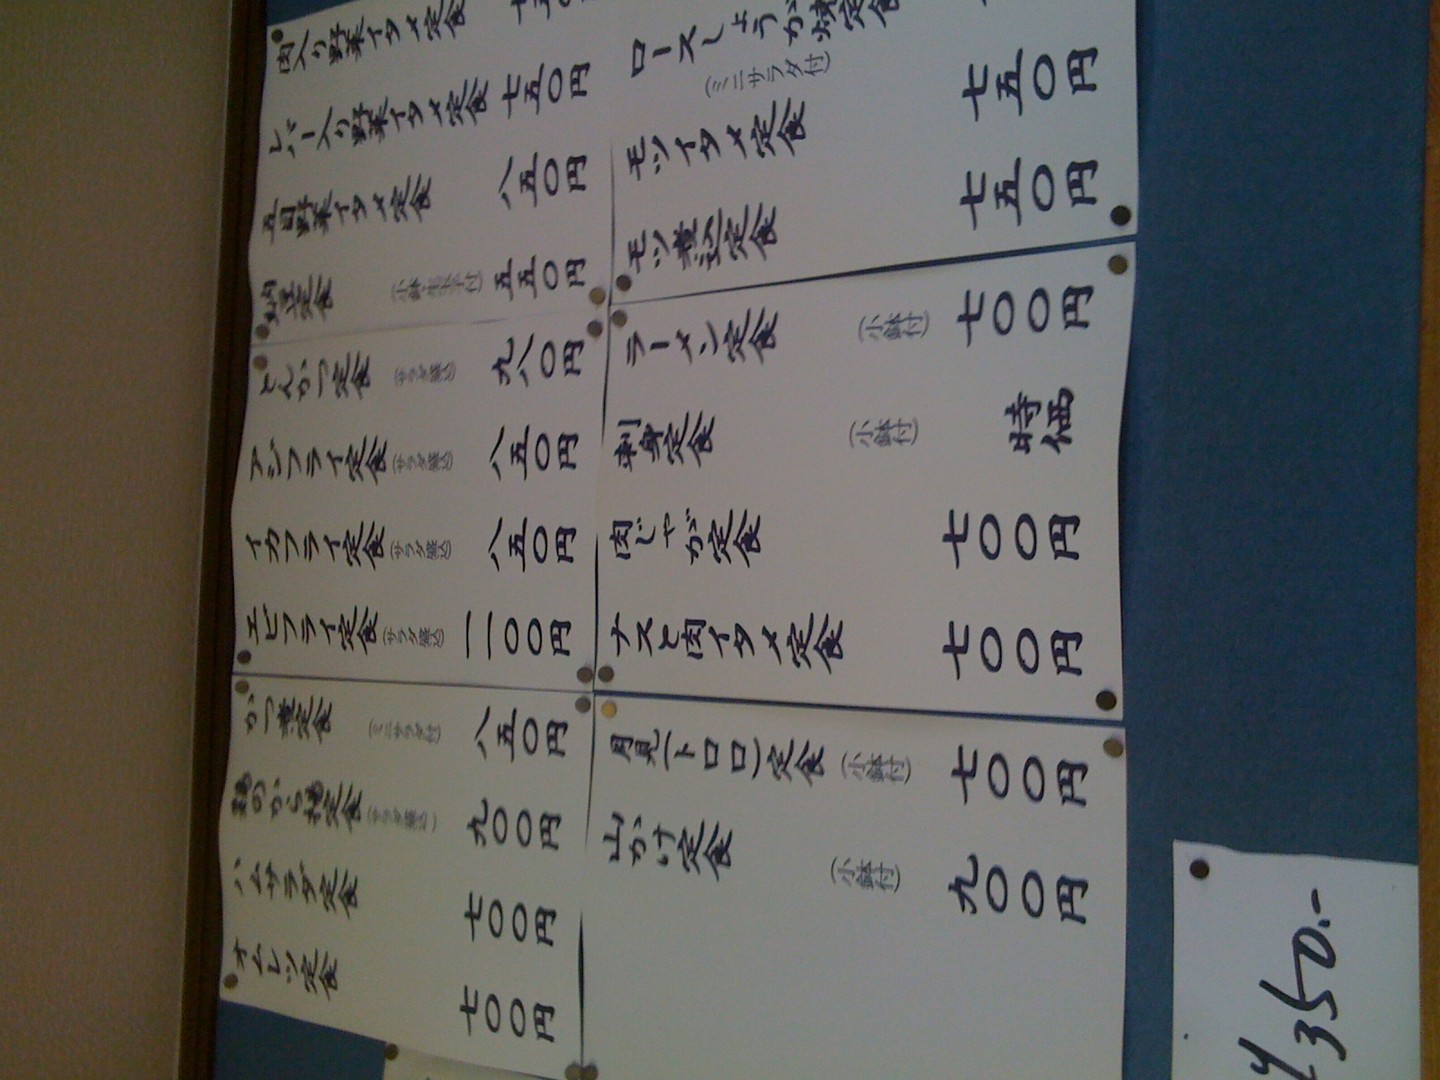 肉入り野菜イタメ定食
レバー入り野菜イタメ定食 七五〇円
五目野菜イタメ定食 八五〇円
納豆定食 (小鉢・生玉子付) 五五〇円
とんかつ定食 (サラダ盛込) 九八〇円
アジフライ定食 (サラダ盛込) 八五〇円
イカフライ定食 (サラダ盛込) 八五〇円
エビフライ定食 (サラダ盛込) 一一〇〇円
かつ煮定食 (ミニサラダ付) 八五〇円
鶏のから揚定食 (サラダ盛込) 九〇〇円
ハムサラダ定食 七〇〇円
オムレツ定食 七〇〇円
ロースしょうが焼定食
(ミニサラダ付)
モツイタメ定食 七五〇円
モツ煮込定食 七五〇円
ラーメン定食 (小鉢付) 七〇〇円
刺身定食 (小鉢付) 時価
肉じゃが定食 七〇〇円
ナスと肉イタメ定食 七〇〇円
月見(トロロ)定食 (小鉢付) 七〇〇円
山かけ定食 (小鉢付) 九〇〇円
¥350.-